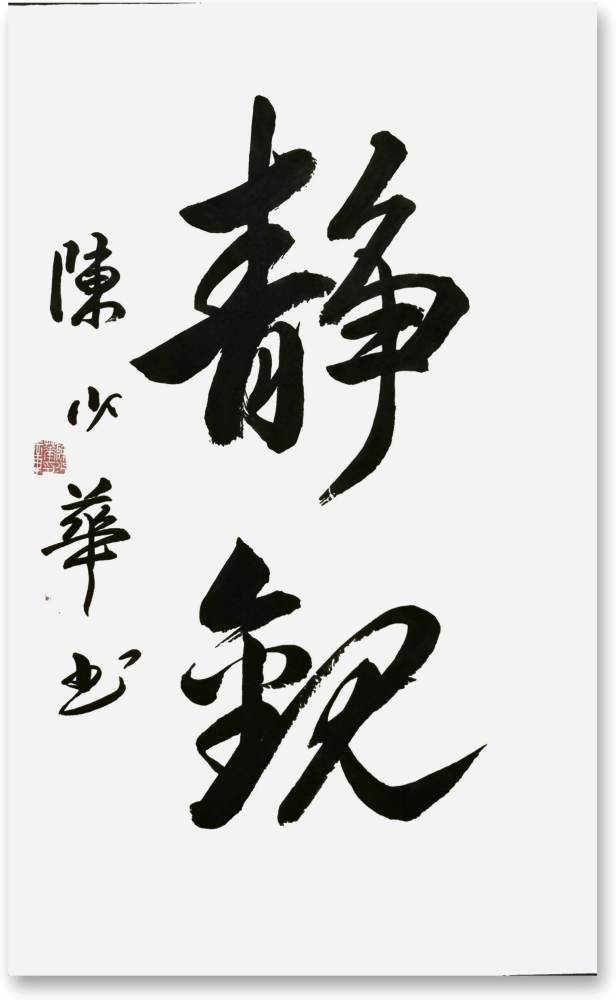 静觀
陳少華书